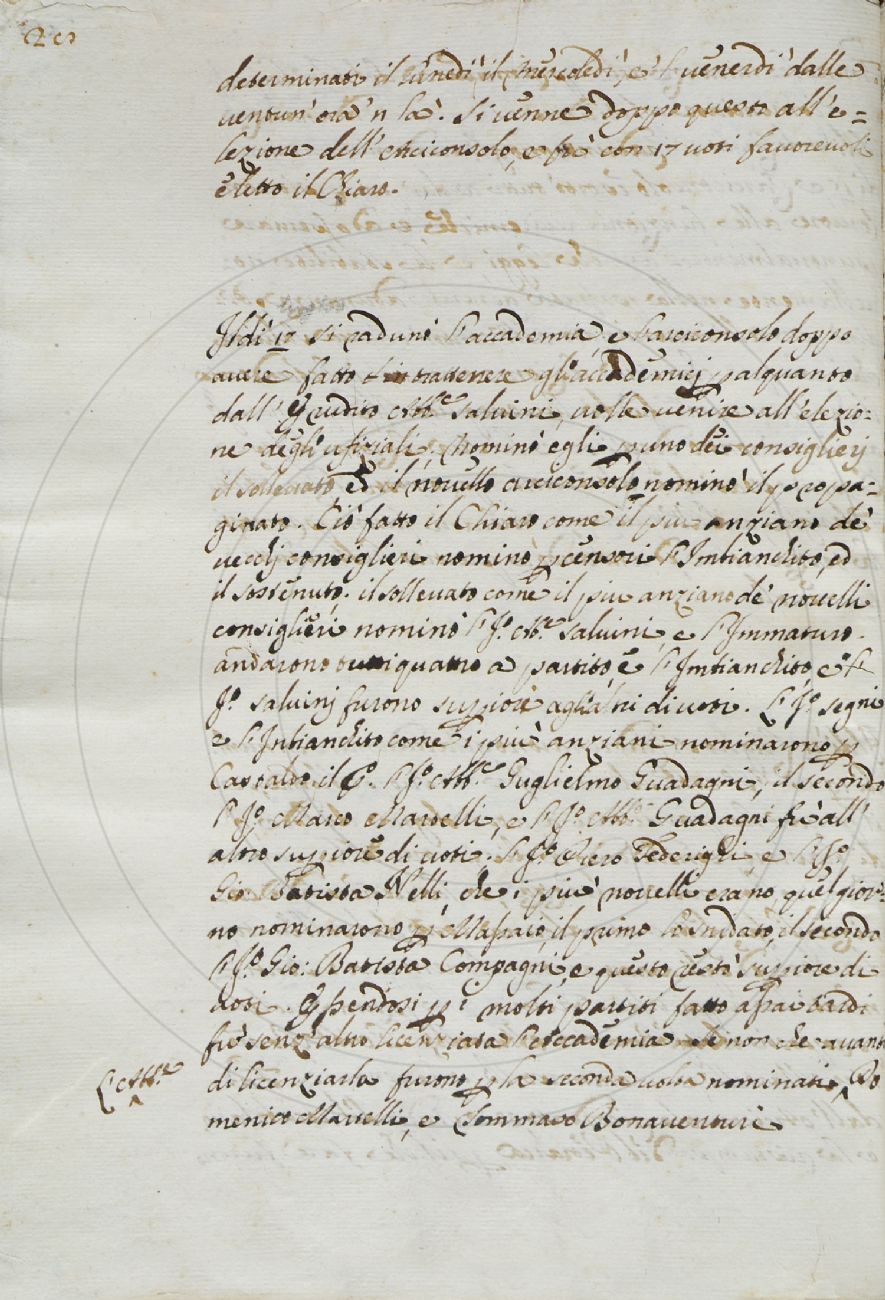 determinati il lunedì, il mercoledì, e 'l venerdì dalle
ventun' ora 'n là. Si venne doppo questo all' e=
lezione dell' Arciconsolo, e fù con 17 voti favorevoli
eletto il Chiaro.
Il dì 17 si radunò l' accademia, e l'arciconsolo doppo
avere fatto trattenere gl' accademici p alquanto
dall' Erudito Abb.e Salvini, volle venire all' elezio=
ne degl' ufiziali. Nominò egli p uno dei consiglieri
il sollevato, ed il novello arciconsolo nominò il propa=
ginato. Ciò fatto il Chiaro come il più anziano de'
vecchi consiglieri nominò p censori l' Imbiandito, ed
il sostenuto. il sollevato come il piu anziano de' novelli
consiglieri nominò l' Ab.e Salvini, e l' Immaturo.
andarono tutti quattro a partito, e l' Imbiandito, e 'l
Salvini furono superiori agl' altri di voti. Segni
e l' Imbiandito come i più anziani nominarono p
Castaldo il P.o Abb.e Guglielmo Guadagni, il secondo
Marco Martelli, e Abb.e Guadagni fù all'
altro superiore di voti. Piero Federighi e
Gio: Batista Nelli, che i più novelli erano quel gior=
no nominarono p Massaio, il primo lo snidato, il secondo
Gio: Batista Compagni, e questo restò superiore di
voti. Essendosi p i molti partiti fatto assai tardi
fù senz' altro licenziata l' Accademia se non che avanti
L' Abb.e
di licenziarla furono p la seconda volta nominati Do
menico Martelli, e Tommaso Bonaventuri